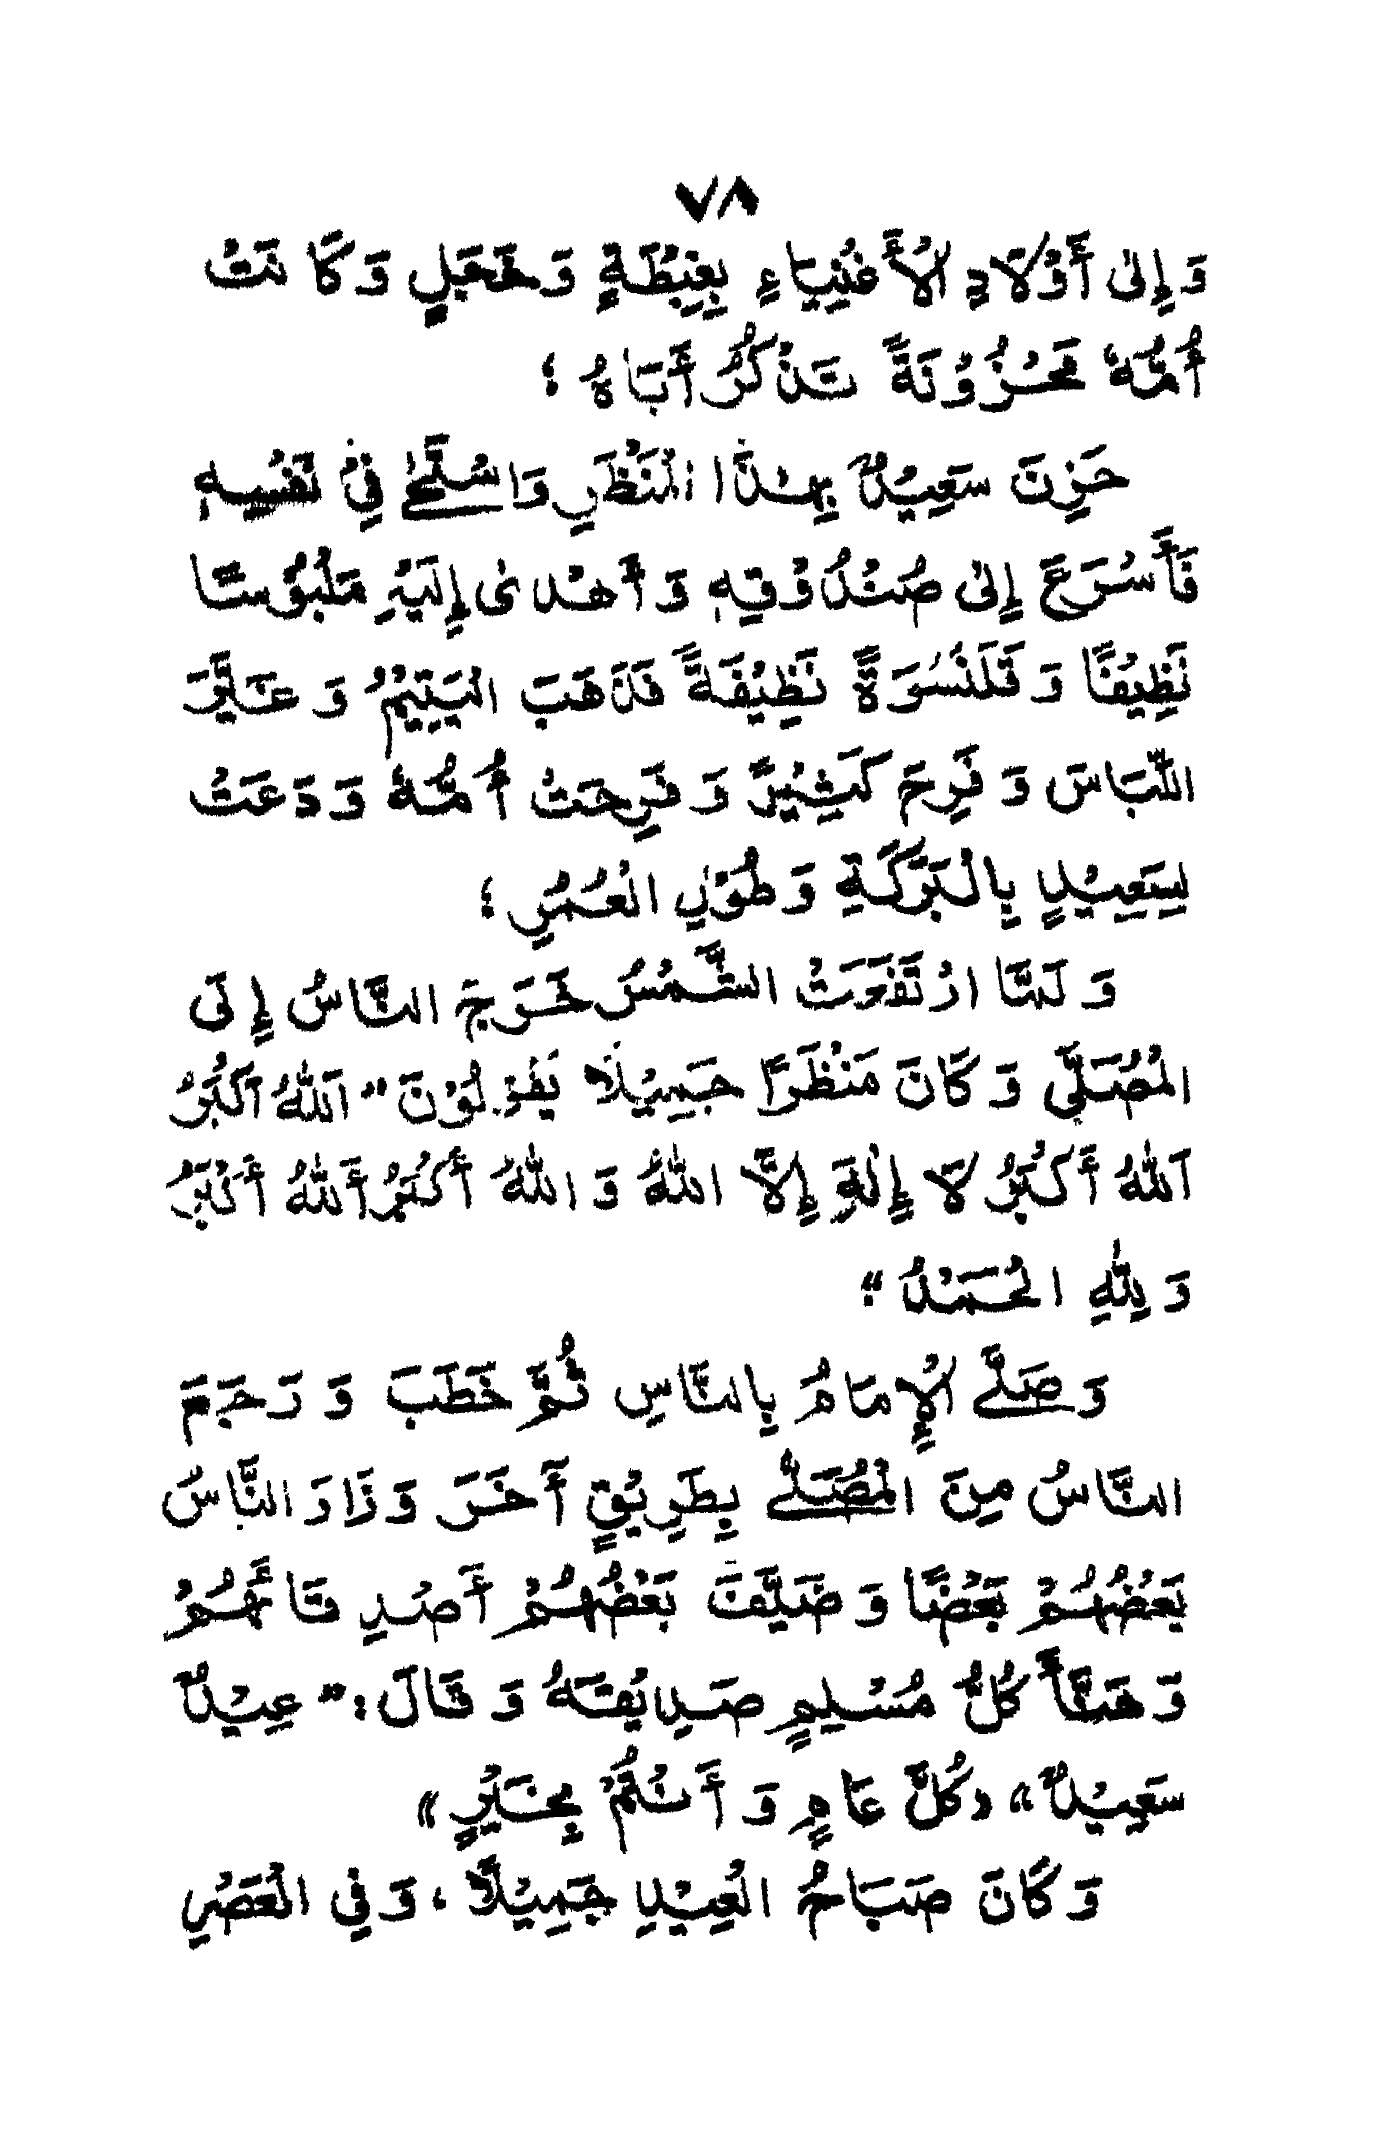 ٧٨
وَإِلىٰ أَوْلَادِ الْأَغْنِيَاءِ بِغِبْطَةٍ وَخَجَلٍ وَكَانَتْ
أُمُّهُ مَحْزُوْنَةً تَذْكُرُ أَبَاهُ ؛
حَزِنَ سَعِيْدٌ بِهٰذَا الْمَنْظَرِ وَاسْتَحْىٰ فِيْ نَفْسِهٖ
فَأَسْرَعَ إِلىٰ صُنْدُوْقِهٖ وَ أَهْدىٰ إِلَيْهِ مَلْبُوْسًا
نَظِيْفًا وَ قَلَنْسُوَةً نَظِيْفَةً فَذَهَبَ الْيَتِيْمُ وَ غَيَّرَ
اللِّبَاسَ وَ فَرِحَ كَثِيْرًا وَ فَرِحَتْ أُمُّهُ وَ دَعَتْ
لِسَعِيْدٍ بِالْبَرَكَةِ وَ طُوْلِ الْعُمُرِ ؛
وَ لَمَّا ارْتَفَعَتْ الشَّمْسُ خَرَجَ النَّاسُ إِلَى
الْمُصَلَّى وَ كَانَ مَنْظَرًا جَمِيْلًا يَقُوْلُوْنَ " اَللّٰهُ اَكْبَرُ
اَللّٰهُ أَكْبَرُ لَا إِلٰهَ إِلَّا اللّٰهُ وَ اللّٰهُ أَكْبَرُ أَللّٰهُ أَكْبَرُ
وَ لِلّٰهِ الْحَمْدُ "؛
وَ صَلَّے الْإِمَامُ بِالنَّاسِ ثُمَّ خَطَبَ وَ رَجَعَ
النَّاسُ مِنَ الْمُصَلّٰے بِطَرِيْقٍ آخَرَ وَ زَارَ النَّاسُ
بَعْضُهُمْ بَعْضًا وَ ضَيَّفَ بَعْضُهُمْ أَصْدِقَائَهُمْ
وَ هَنَّأَ كُلُّ مُسْلِمٍ صَدِيْقَهُ وَ قَالَ :" عِيْدٌ
سَعِيْدٌ " «كُلَّ عَامٍ وَ أَنْتُمْ بِخَيْرٍ»
وَ كَانَ صَبَاحُ الْعِيْدِ جَمِيْلًا ، وَ فِي الْعَصْرِ